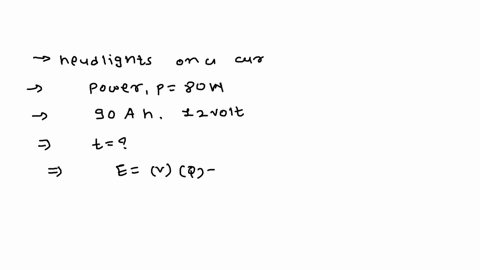 → headlights on a car
→ Power, P = 80W
→ 90 Ah. 12 volt
⇒ t = ?
⇒ E = (V) (Q) -